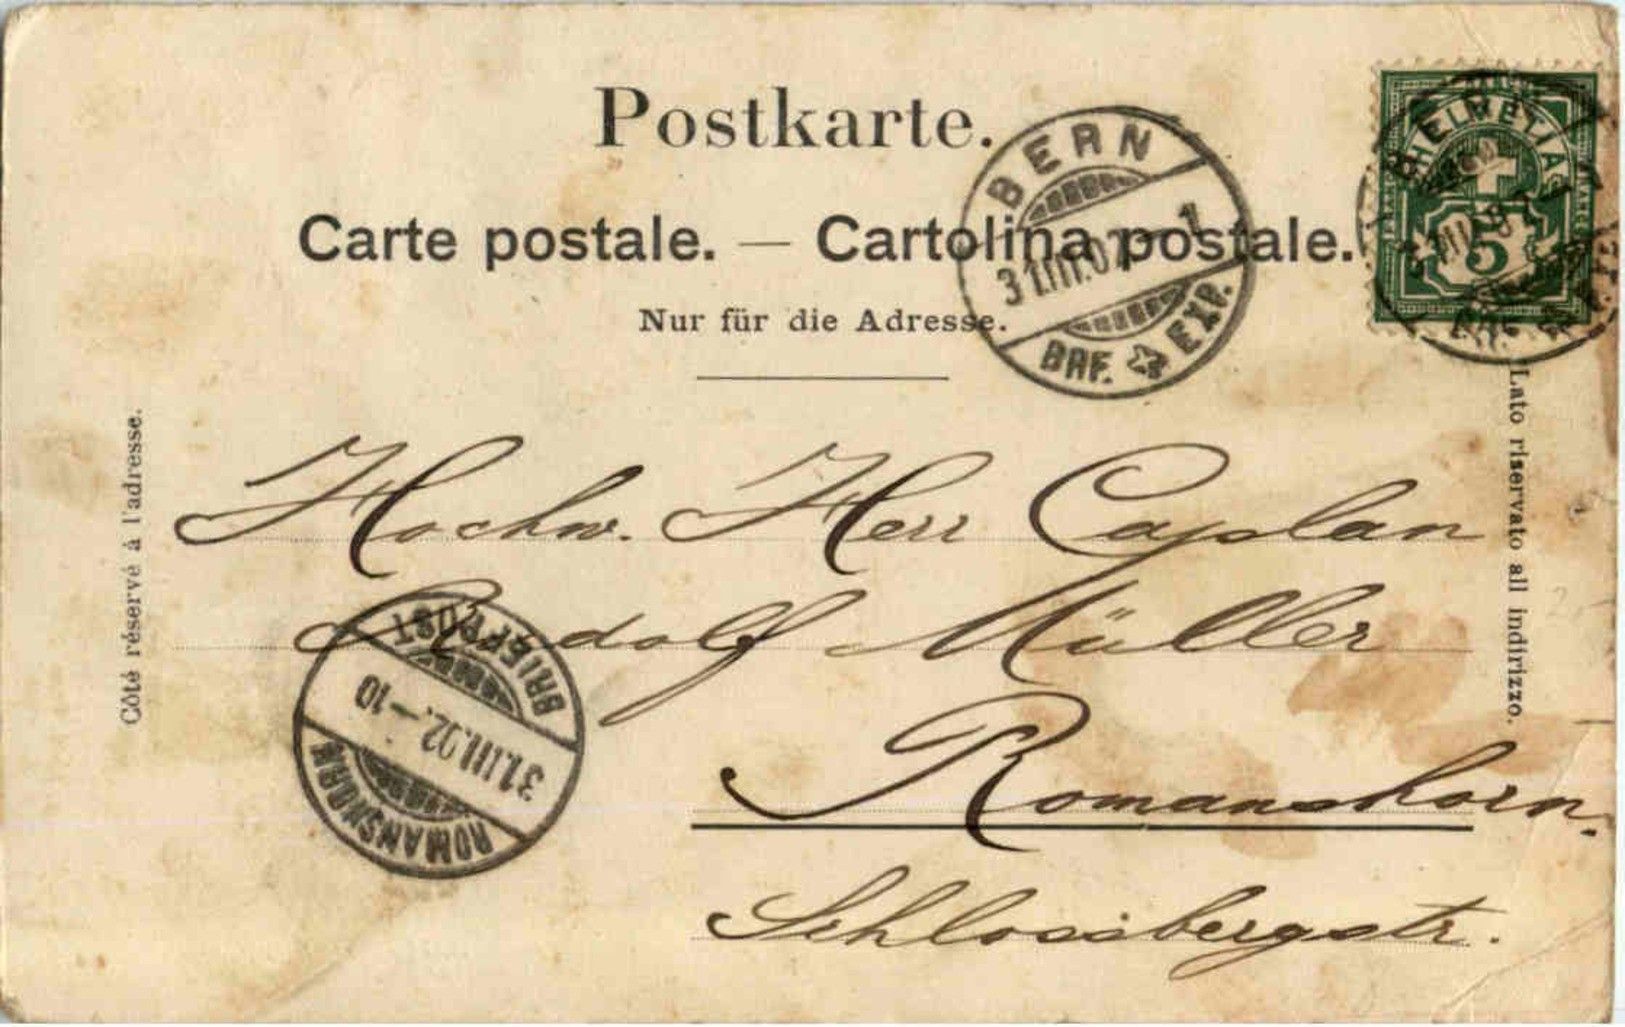 Postkarte.
Carte postale. — Cartolina postale.
Nur für die Adresse.
BERN
31.III.02.–1
BRF. EXP.
HELVETIA
5
Côté réservé à l'adresse.
Lato riservato all indirizzo.
Hochw. Herr Caplan
Rudolf Müller
Romanshorn.
Schlossbergstr.
BRIEFPOST
31.III.02.–10
ROMANSHORN